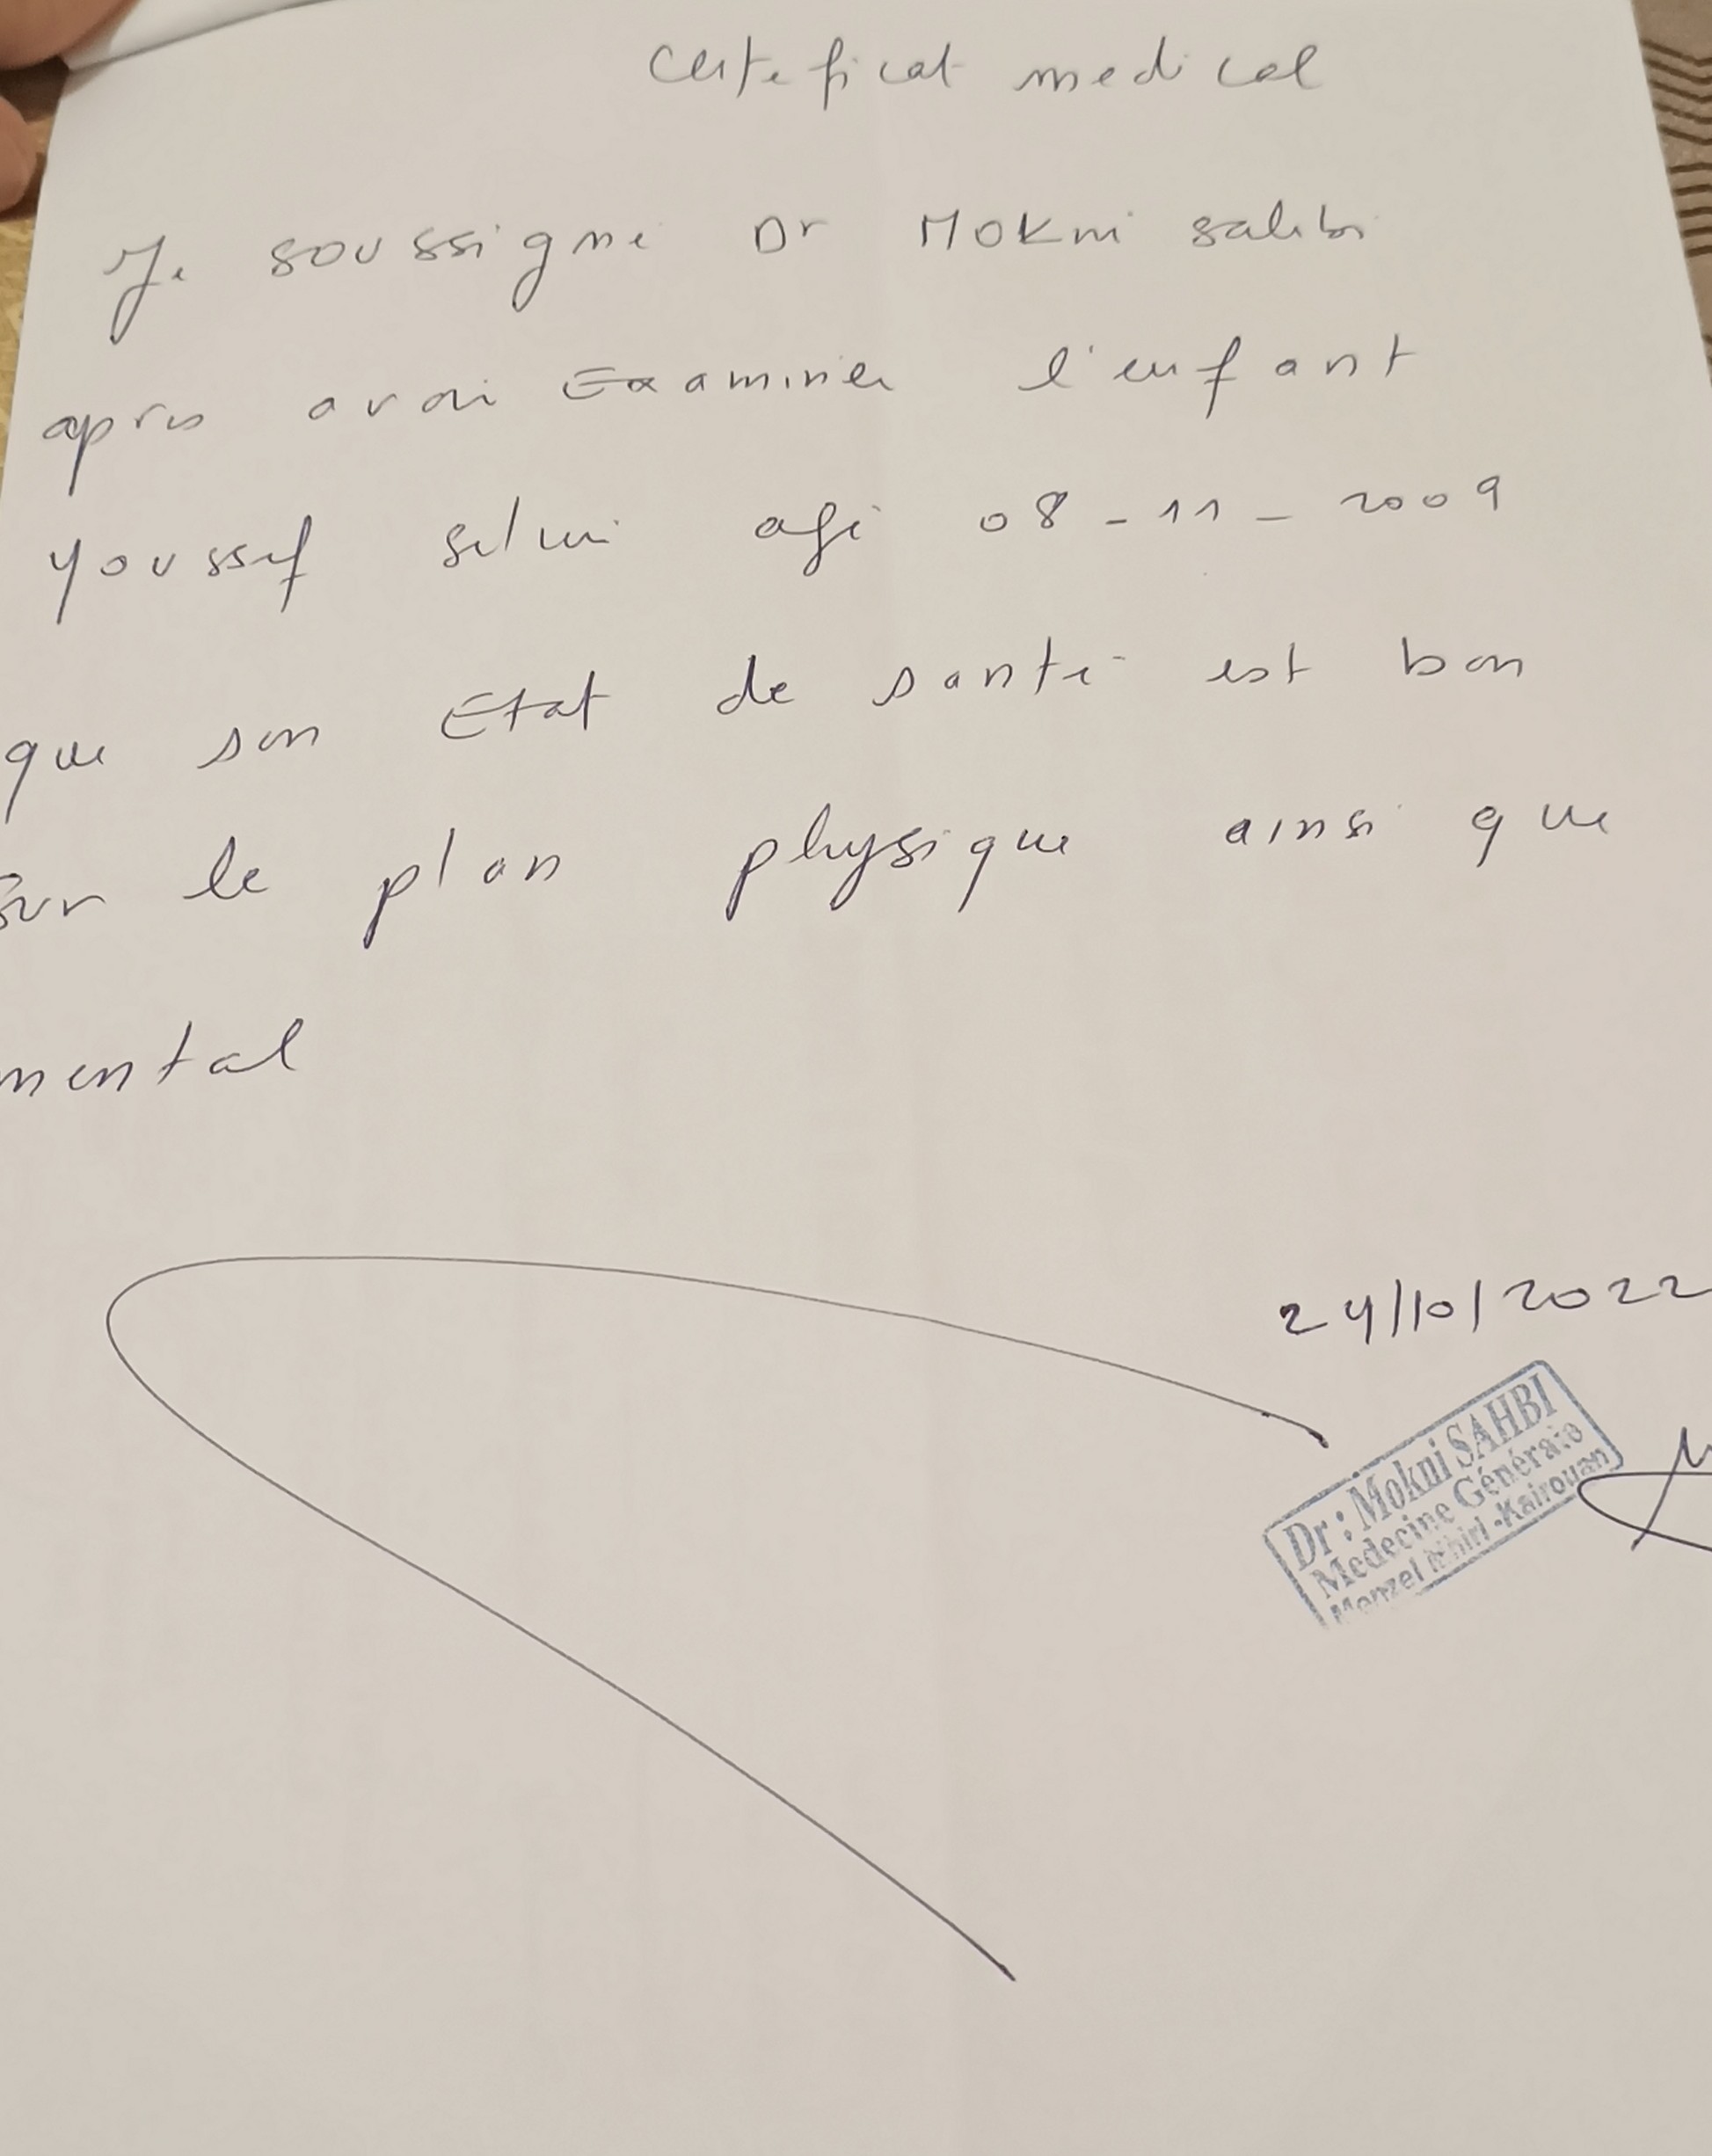 Certeficat medical
Je soussigné Dr Mokni sahbi
après avoir Examiner l'enfant
Youssef selmi agé 08-11-2009
que son Etat de santé est bon
sur le plan physique ainsi que
mental
24/10/2022
Dr : Mokni SAHBI
Medecine Générale
Menzel Mhiri -Kairouan